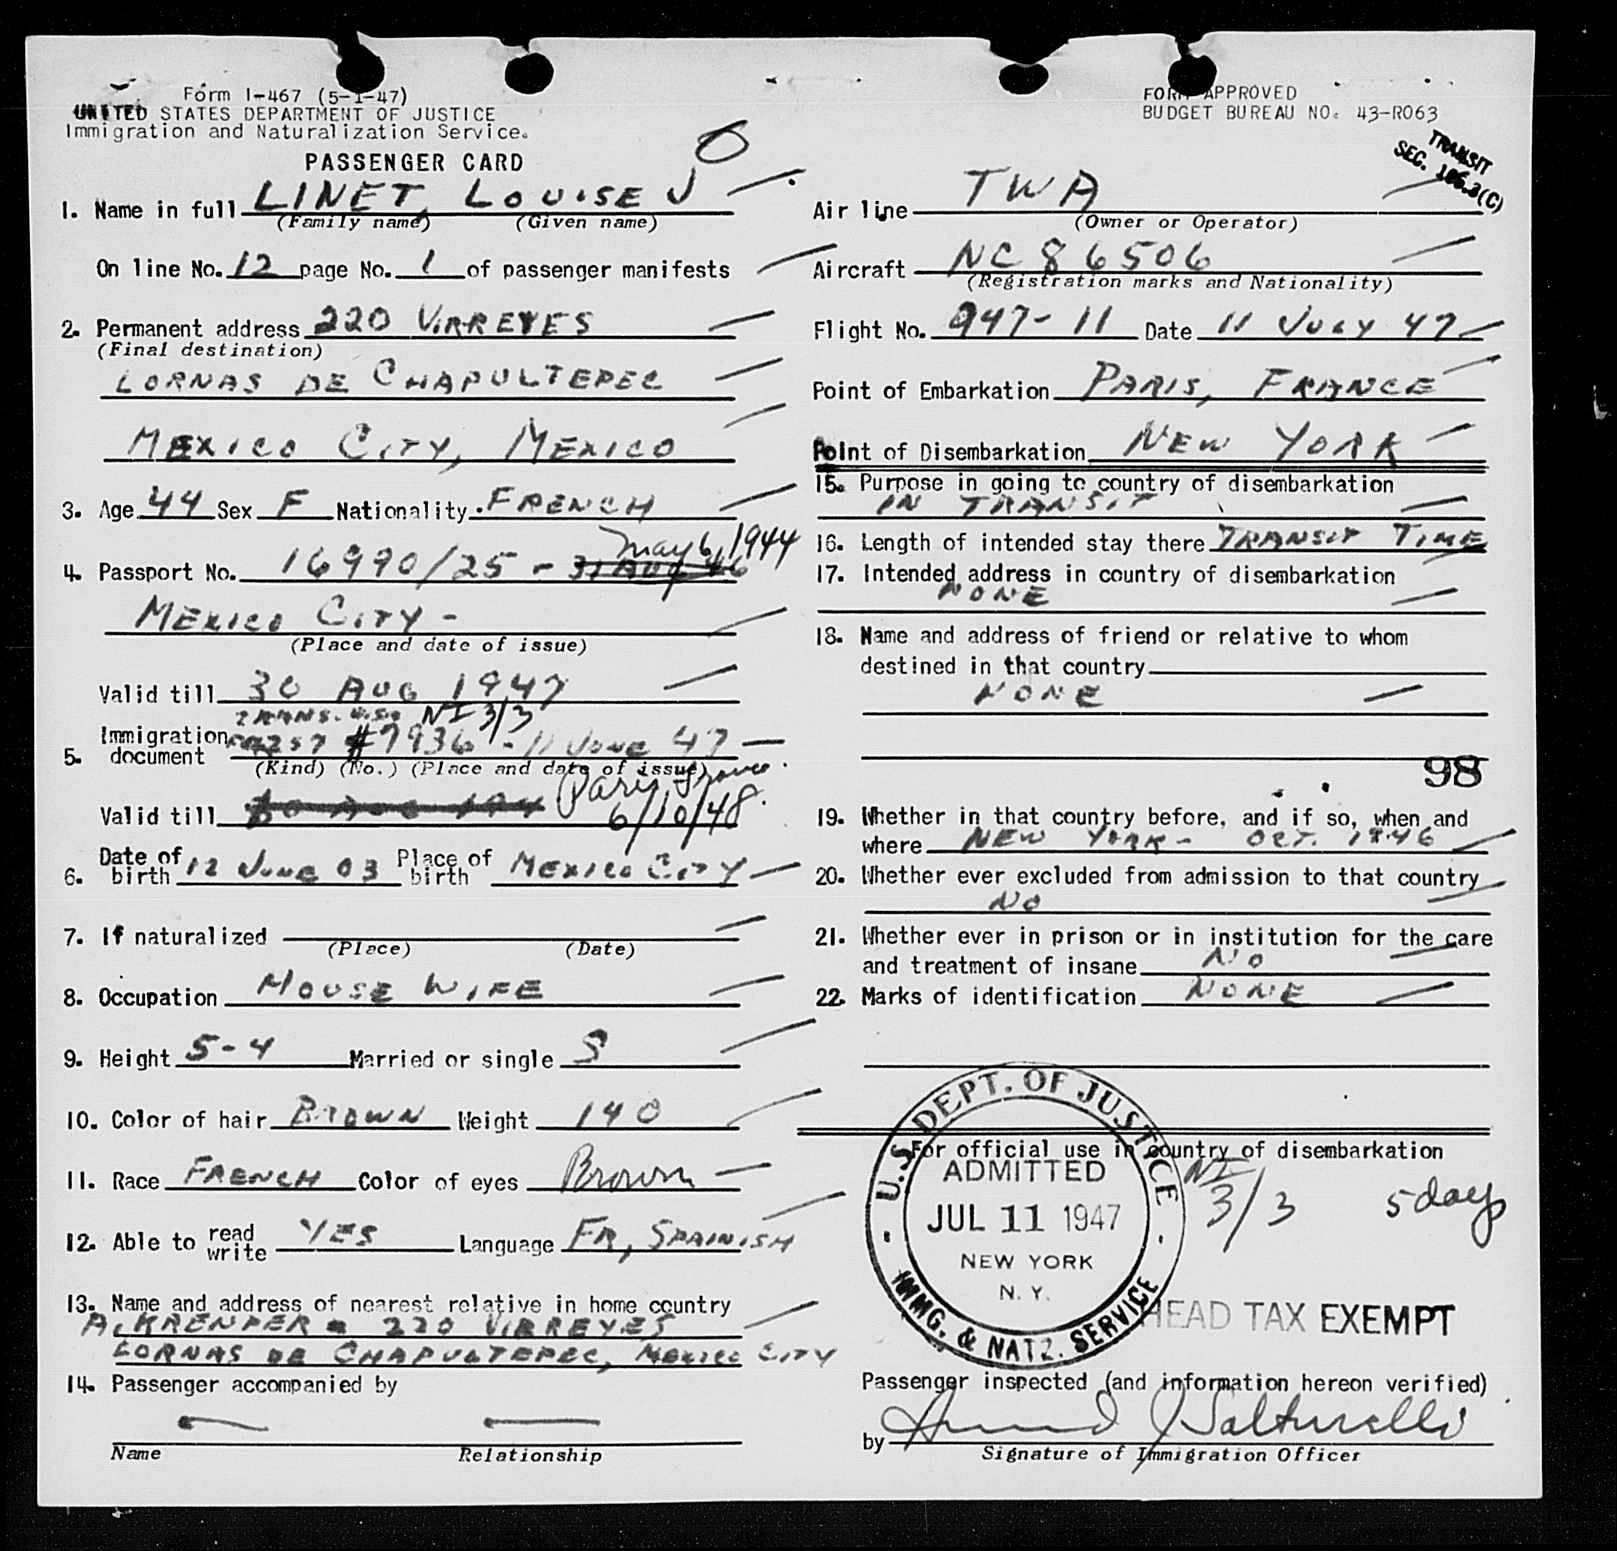 Form I-467 (5-1-47)
UNITED STATES DEPARTMENT OF JUSTICE
Immigration and Naturalization Service.
PASSENGER CARD
1. Name in full LINET, LOUISE J
(Family name) (Given name)
On line No. 12 page No. 1 of passenger manifests
2. Permanent address 220 VIRREYES
(Final destination)
LORNAS DE CHAPULTEPEC
MEXICO CITY, MEXICO
3. Age 44 Sex F Nationality FRENCH
4. Passport No. 16990/25 - 31 AUG 46 May 6, 1944
MEXICO CITY -
(Place and date of issue)
Valid till 30 AUG 1947
TRANS. NI 3/3
5. Immigration document #7936 - 11 JUNE 47
(Kind) (No.) (Place and date of issue)
Paris France
Valid till 6/10/48.
6. Date of birth 12 JUNE 03 Place of birth MEXICO CITY
7. If naturalized
(Place) (Date)
8. Occupation HOUSE WIFE
9. Height 5-4 Married or single S
10. Color of hair BROWN Weight 140
11. Race FRENCH Color of eyes Brown
12. Able to read write YES Language FR, SPAINISH
13. Name and address of nearest relative in home country
220 VIRREYES
LORNAS DE CHAPULTEPEC, MEXICO CITY
14. Passenger accompanied by
Name Relationship
FORM APPROVED
BUDGET BUREAU NO. 43-R063
TRANSIT
SEC. (C)
Air line TWA
(Owner or Operator)
Aircraft NC 86506
(Registration marks and Nationality)
Flight No. 947-11 Date 11 JULY 47
Point of Embarkation PARIS, FRANCE
Point of Disembarkation NEW YORK
15. Purpose in going to country of disembarkation
IN TRANSIT
16. Length of intended stay there TRANSIT TIME
17. Intended address in country of disembarkation
NONE
18. Name and address of friend or relative to whom
destined in that country
NONE
98
19. Whether in that country before, and if so, when and
where NEW YORK - OCT. 1946
20. Whether ever excluded from admission to that country
NO
21. Whether ever in prison or in institution for the care
and treatment of insane NO
22. Marks of identification NONE
For official use in country of disembarkation
U.S. DEPT. OF JUSTICE
ADMITTED
JUL 11 1947
NEW YORK
N. Y.
IMMG. & NATZ. SERVICE
NI
3/3 5 days
HEAD TAX EXEMPT
Passenger inspected (and information hereon verified)
by
Signature of Immigration Officer